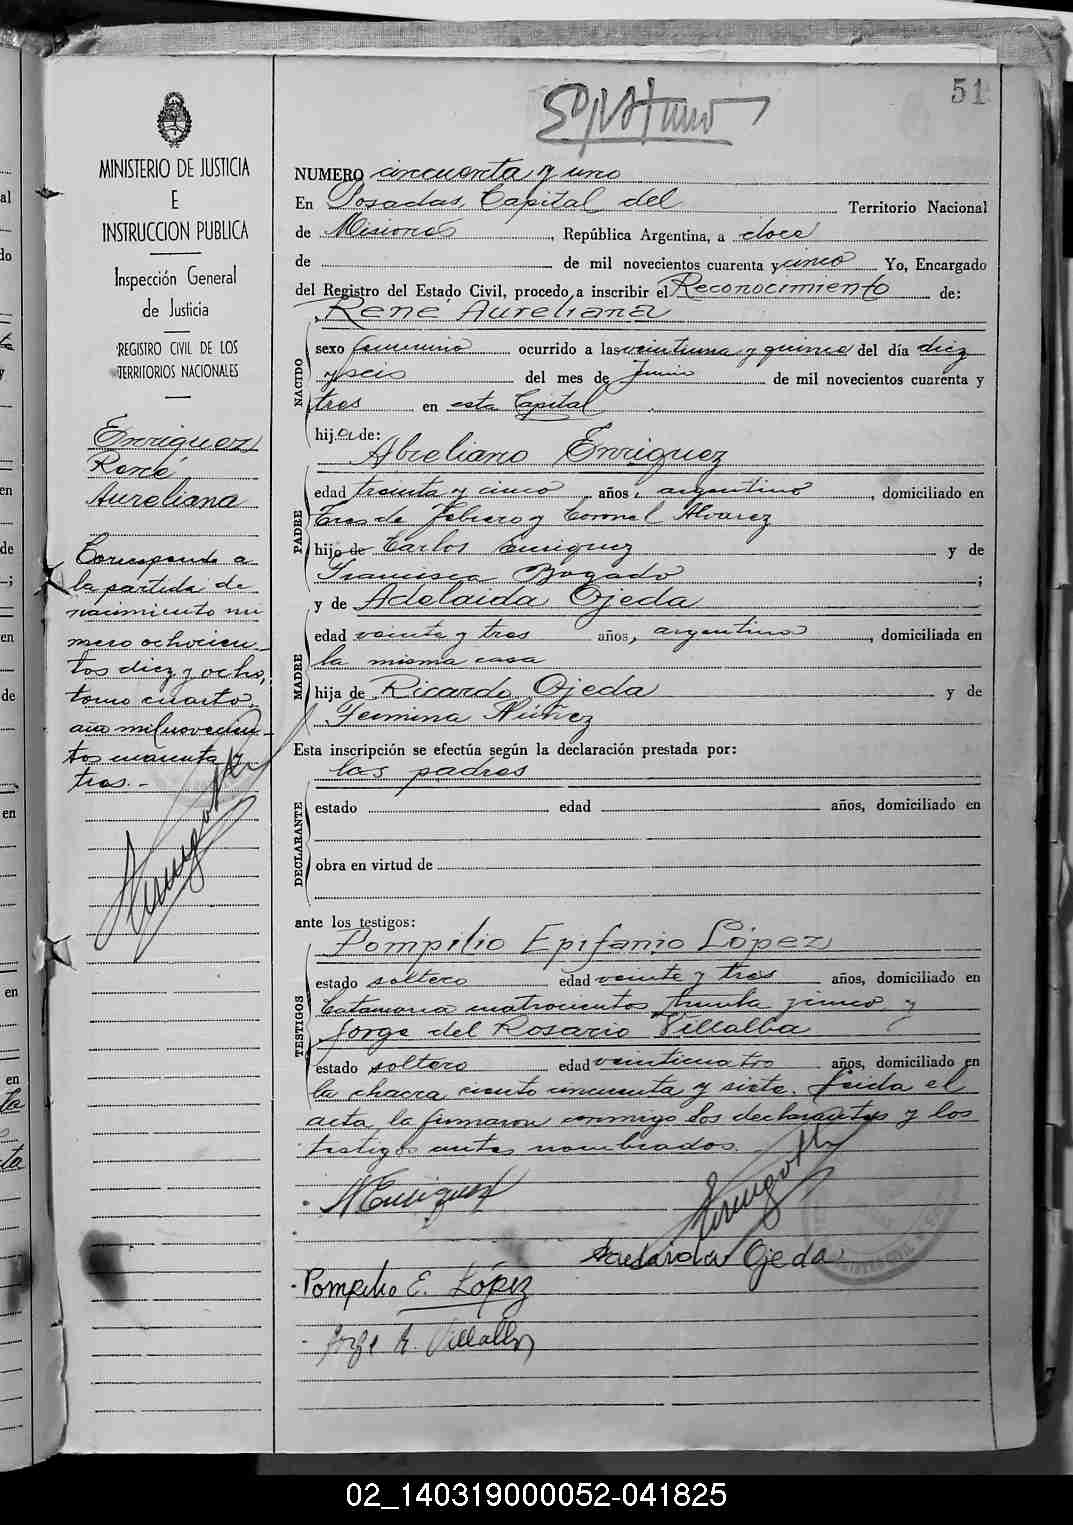 51
MINISTERIO DE JUSTICIA
E
INSTRUCCION PUBLICA
Inspección General
de Justicia
REGISTRO CIVIL DE LOS
TERRITORIOS NACIONALES
Enriquez
René
Aureliana
Corresponde a
la partida de
nacimiento nu
mero ochocien-
tos diez y ocho,
tomo cuarto,
año mil novecien-
tos cuarenta y
tres.-
NUMERO cincuenta y uno
En Posadas, Capital del Territorio Nacional
de Misiones, República Argentina, a doce
de de mil novecientos cuarenta y cinco Yo, Encargado
del Registro del Estado Civil, procedo a inscribir el Reconocimiento de:
René Aureliana
NACIDO
sexo femenino ocurrido a las veintiuna y quince del día diez
y seis del mes de Junio de mil novecientos cuarenta y
tres en esta Capital
hija de:
Abreliano Enriquez
PADRE
edad treinta y cinco años, argentino, domiciliado en
Tres de Febrero y Coronel Alvarez
hijo de Carlos Enriquez y de
Francisca Bogado;
y de Adelaida Ojeda
MADRE
edad veinte y tres años, argentina, domiciliada en
la misma casa
hija de Ricardo Ojeda y de
Fermina Núñez
Esta inscripción se efectúa según la declaración prestada por:
los padres
DECLARANTE
estado edad años, domiciliado en
obra en virtud de
ante los testigos:
Pompilio Epifanio López
TESTIGOS
estado soltero edad veinte y tres años, domiciliado en
Catamarca cuatrocientos treinta y cinco y
Jorge del Rosario Villalba
estado soltero edad veinticuatro años, domiciliado en
la chacra ciento cincuenta y siete. Leida el
acta la firmaron conmigo los declarantes y los
testigos antes nombrados.
Enriquez
Adelaida Ojeda
Pompilio E. López
Jorge R. Villalba
02_140319000052-041825